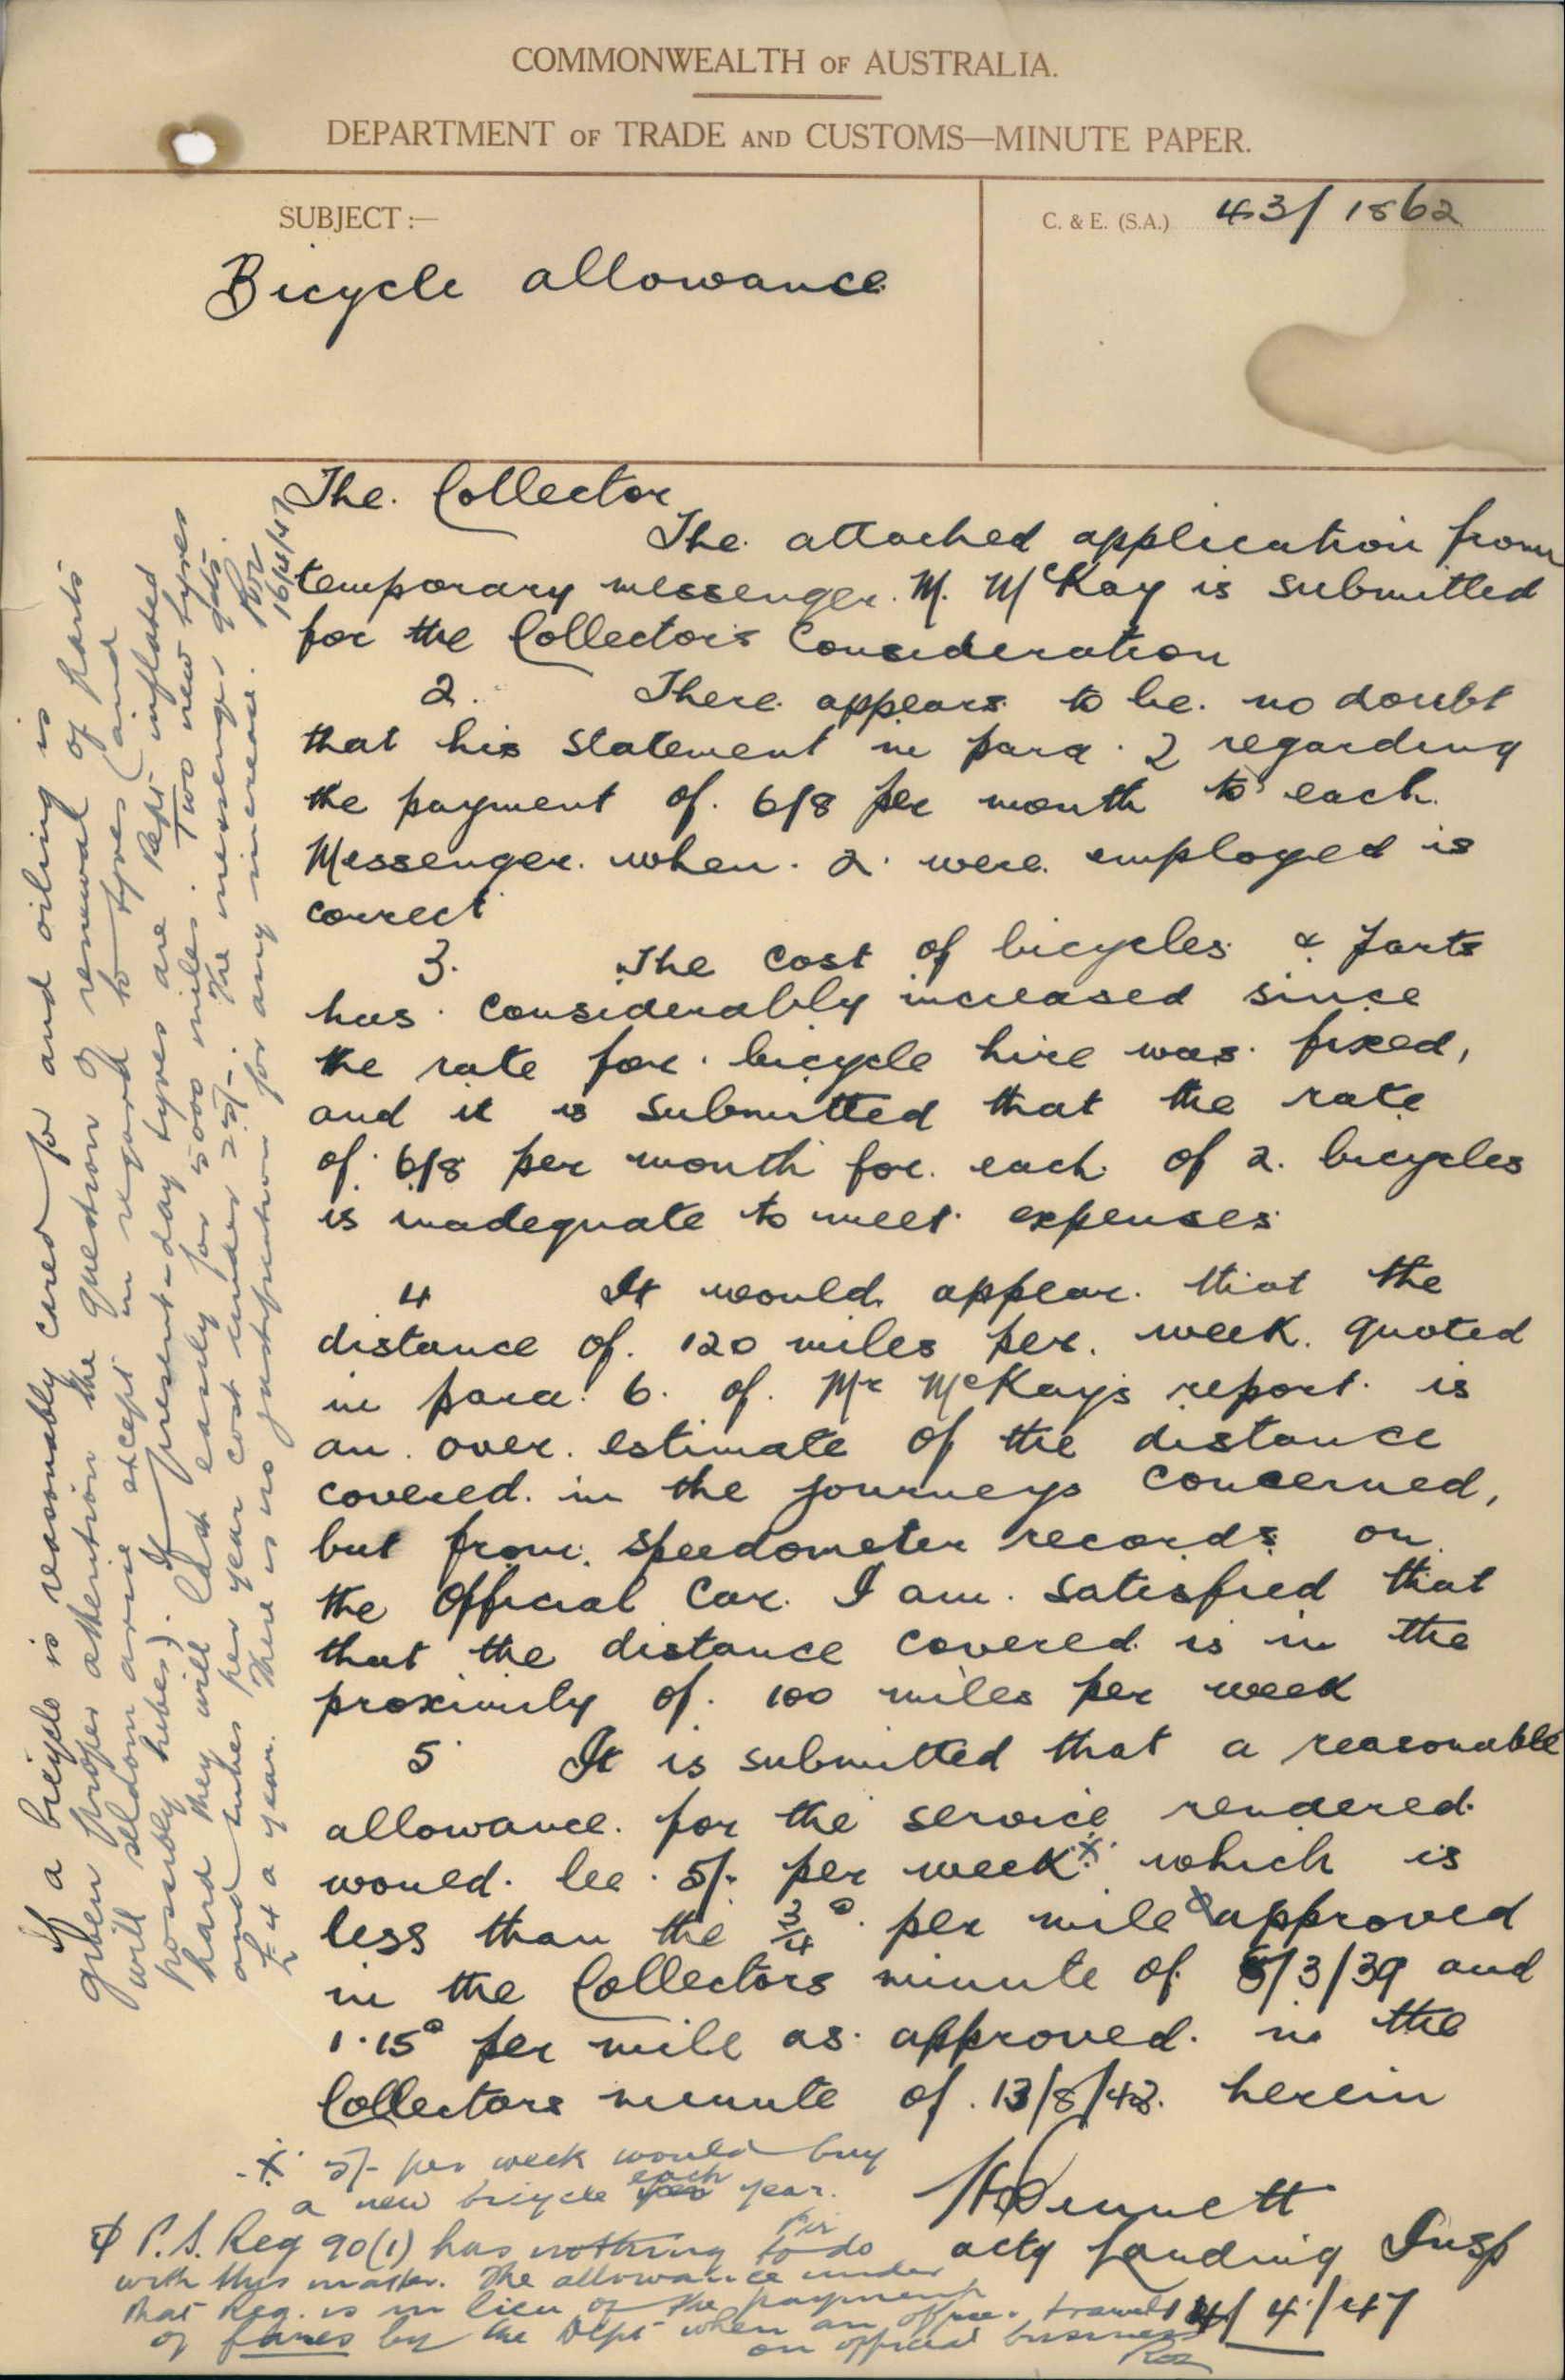 COMMONWEALTH OF AUSTRALIA.
DEPARTMENT OF TRADE AND CUSTOMS—MINUTE PAPER.
SUBJECT :—
C. & E. (S.A.) 43/1862
Bicycle allowance
The Collector
The attached application from
temporary messenger M. McKay is submitted
for the Collector's Consideration
2. There appears to be no doubt
that his statement in para. 2 regarding
the payment of 6/8 per month to each
Messenger when 2 were employed is
correct
3. The cost of bicycles & parts
has considerably increased since
the rate for bicycle hire was fixed,
and it is submitted that the rate
of 6/8 per month for each of 2 bicycles
is inadequate to meet expenses
4 It would appear that the
distance of 120 miles per week quoted
in para. 6. of Mr McKay's report is
an over estimate of the distance
covered in the journeys concerned,
but from speedometer records on
the Official Car I am satisfied that
that the distance covered is in the
proximity of 100 miles per week
5 It is submitted that a reasonable
allowance for the service rendered
would be 5/- per week x which is
less than the 3/4 d per mile ϕ approved
in the Collectors minute of 5/3/39 and
1.15d per mile as approved in the
Collectors minute of 13/8/43 herein
acty Landing Insp
14/4/47
x 5/- per week would buy
a new bicycle each year.
ϕ P.S. Reg 90(1) has nothing to do
with this matter. The allowance under
that Reg. is in lieu of the payment
of fares by the Dept when an officer travels
on official business
If a bicycle is reasonably cared for and oiling is
given proper attention the question of renewal of parts
will seldom arise except in regard to tyres (and
possibly tubes). If present-day tyres are kept inflated
hard they will last easily for 5000 miles. Two new tyres
and tubes per year cost under 25/-. The messenger gets
£4 a year. There is no justification for any increase.
16/4/47